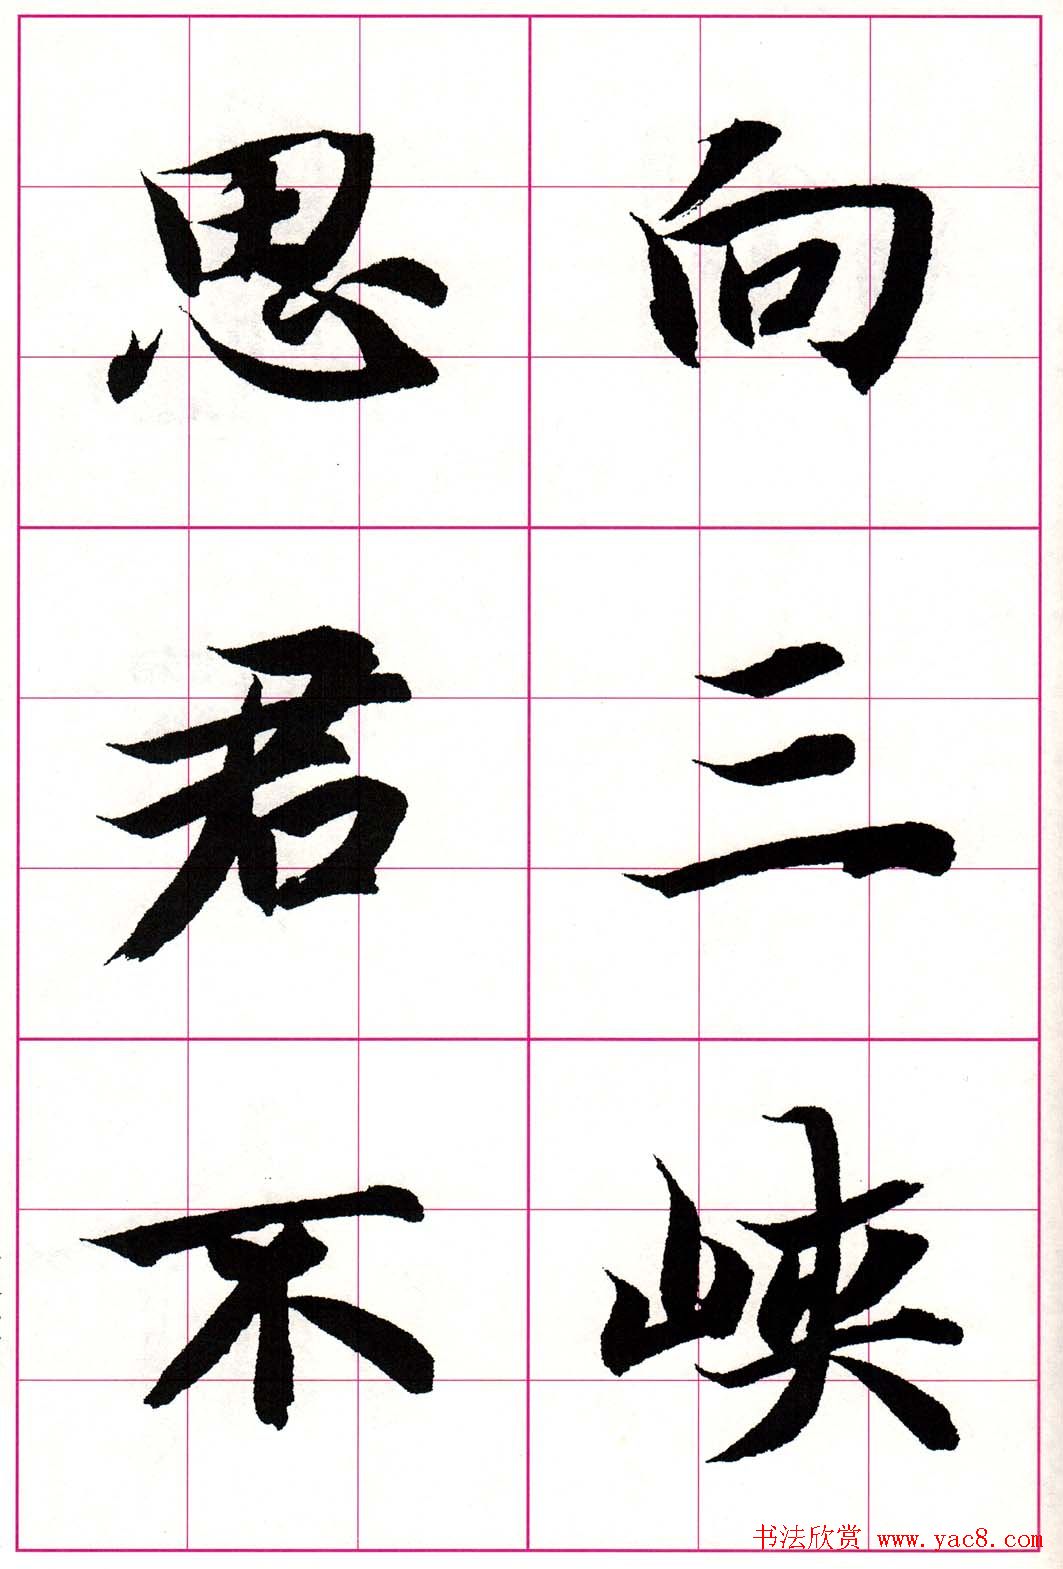 向三峡
思君不
书法欣赏 www.yac8.com